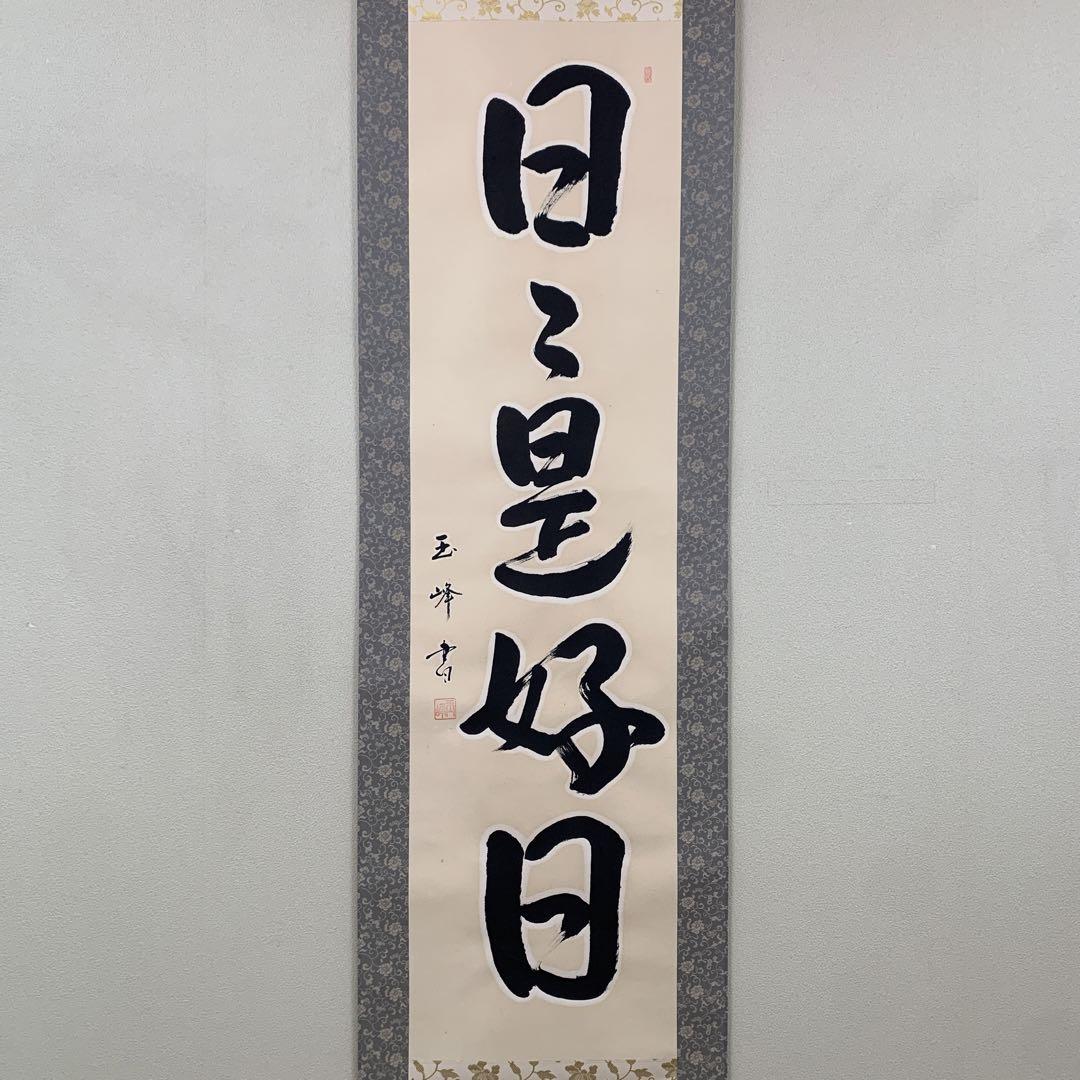 日々是好日
玉峰書